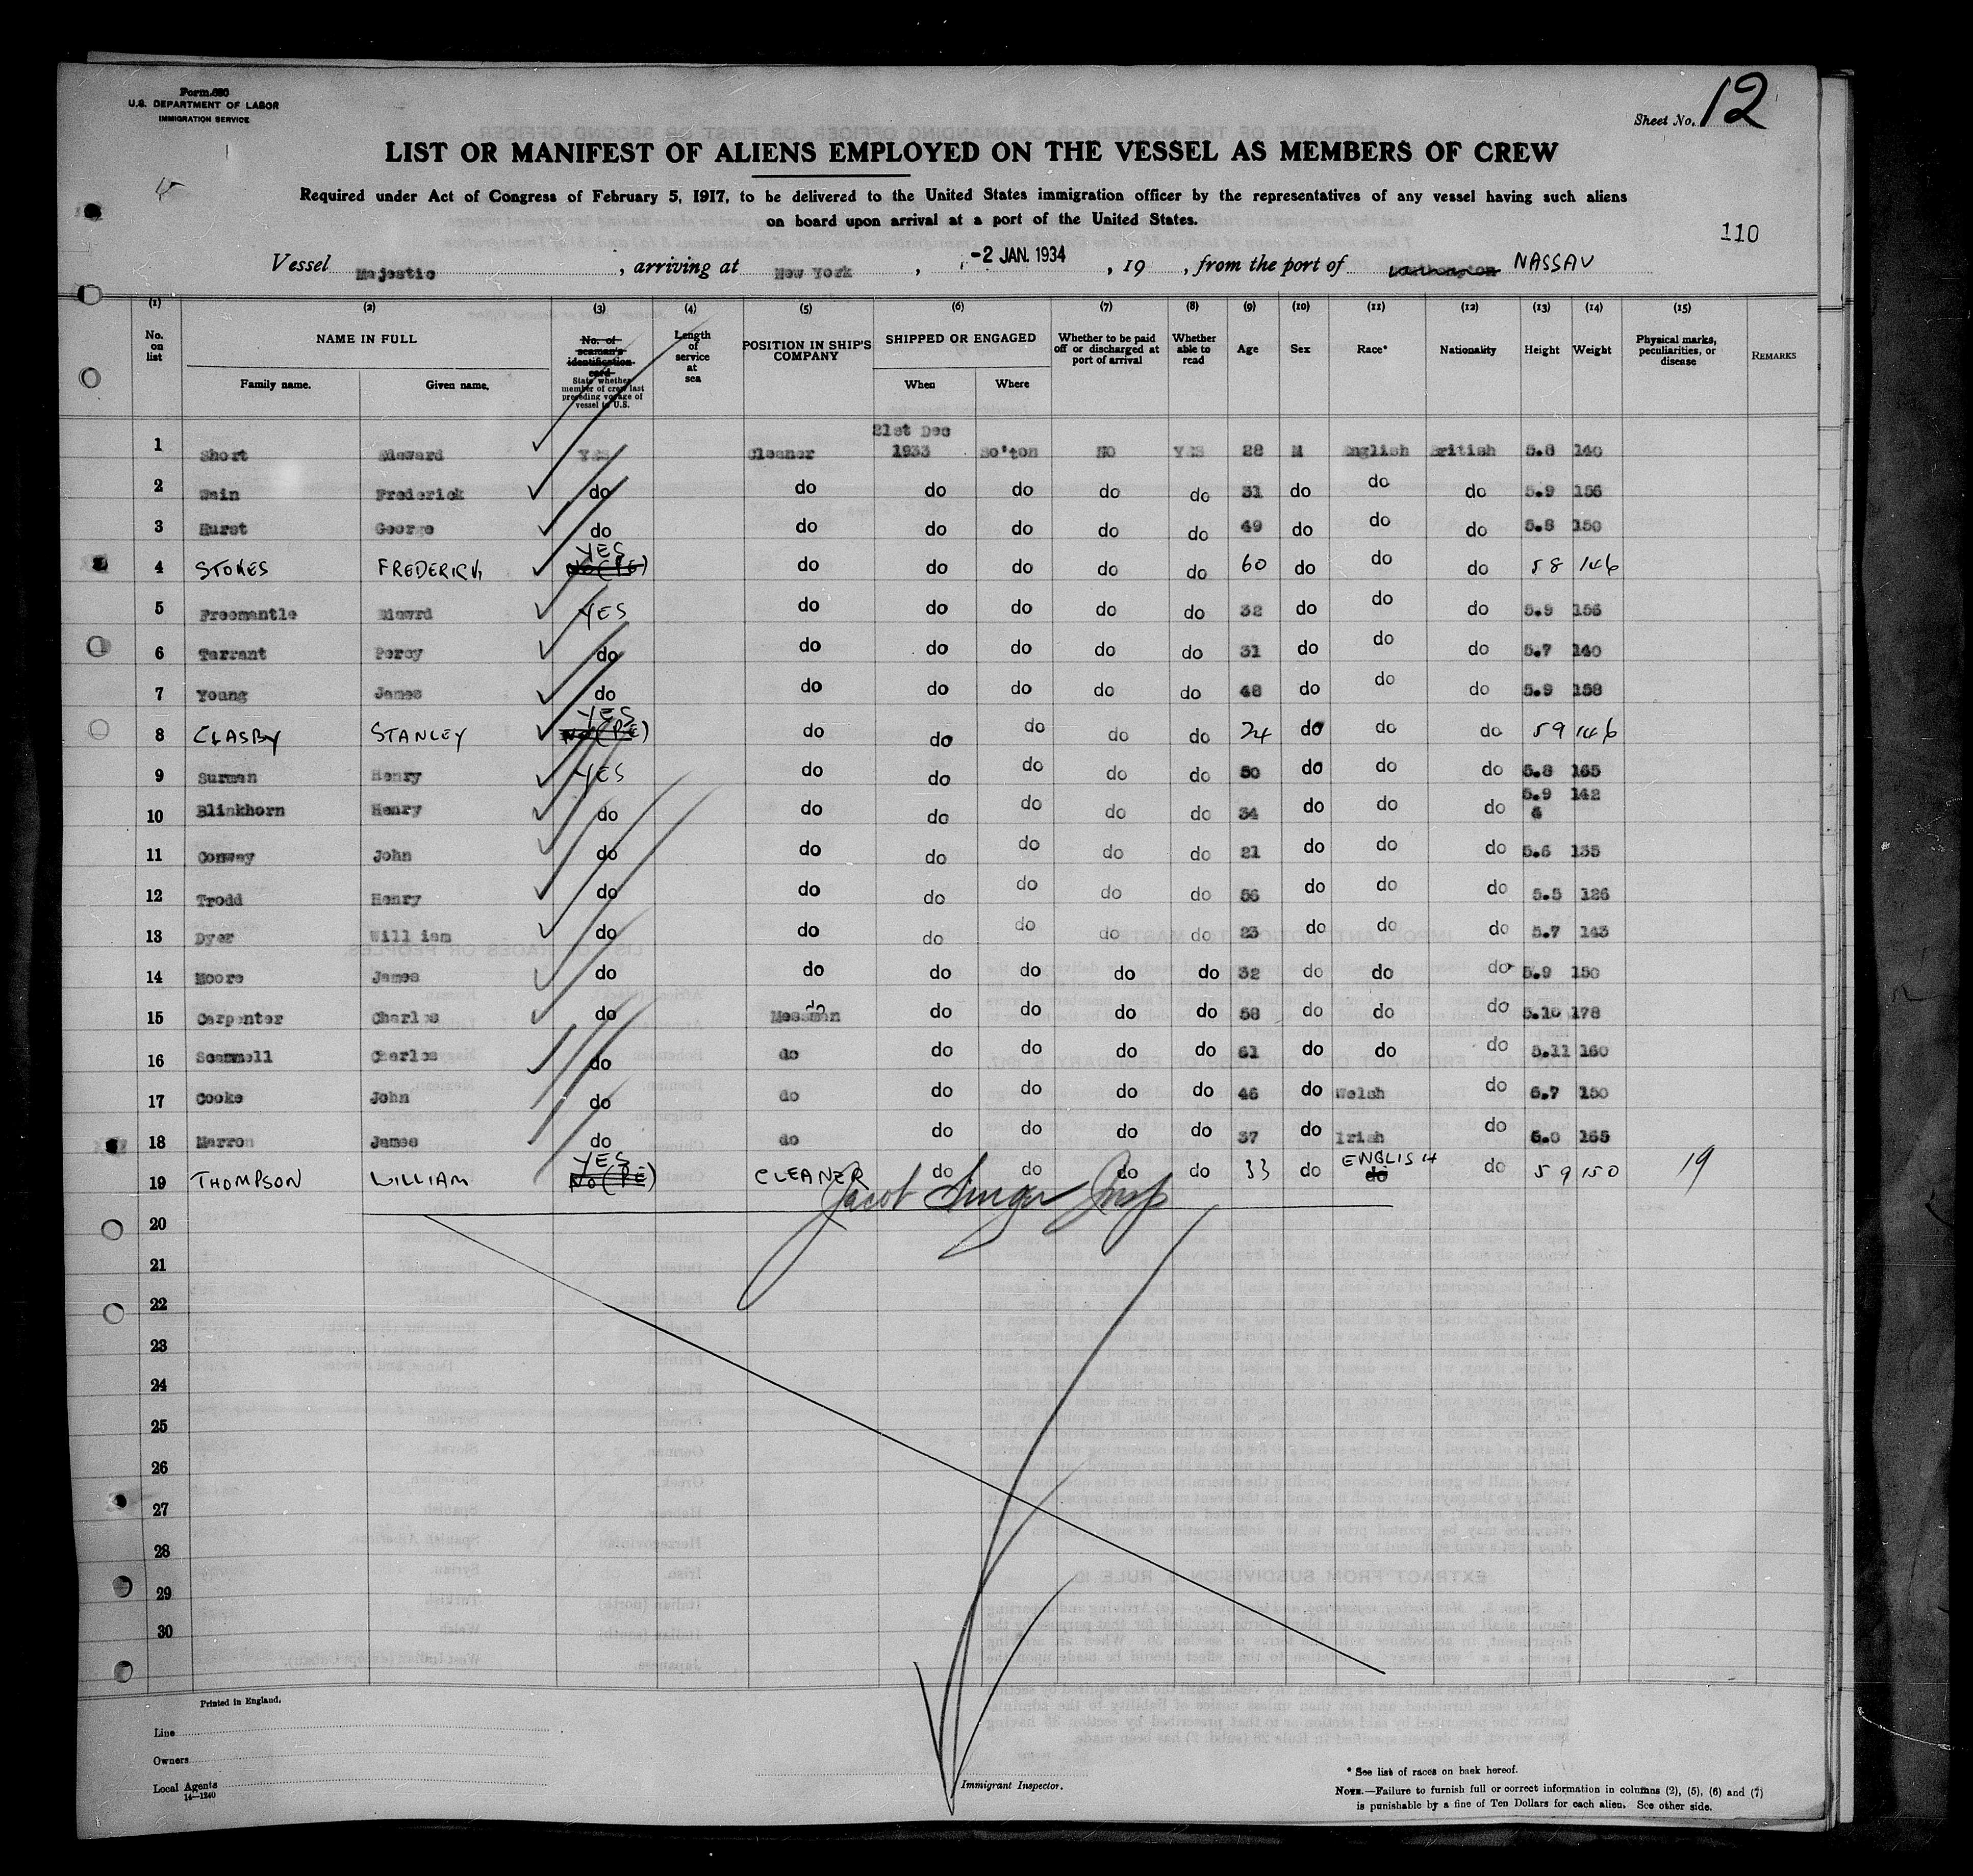 Form 680
U.S. DEPARTMENT OF LABOR
IMMIGRATION SERVICE
Sheet No. 12
LIST OR MANIFEST OF ALIENS EMPLOYED ON THE VESSEL AS MEMBERS OF CREW
Required under Act of Congress of February 5, 1917, to be delivered to the United States immigration officer by the representatives of any vessel having such aliens
on board upon arrival at a port of the United States.
110
Vessel Majestic, arriving at New York, -2 JAN. 1934, 19 , from the port of Southampton NASSAU
(1) (2) (3) (4) (5) (6) (7) (8) (9) (10) (11) (12) (13) (14) (15)
No. on list NAME IN FULL Family name. Given name. No. of seaman's identification card State whether member of crew last preceding voyage of vessel to U.S. Length of service at sea POSITION IN SHIP'S COMPANY SHIPPED OR ENGAGED When Where Whether to be paid off or discharged at port of arrival Whether able to read Age Sex Race* Nationality Height Weight Physical marks, peculiarities, or disease REMARKS
1 Short Edward YES Cleaner 21st Dec 1933 So'ton NO YES 28 M English British 5.8 140
2 Wain Frederick do do do do do do 31 do do do 5.9 156
3 Hurst George do do do do do do 49 do do do 5.8 150
4 STOKES FREDERICK YES No (PE) do do do do do 60 do do do 5 8 146
5 Freemantle Edwrd YES do do do do do 32 do do do 5.9 156
6 Tarrant Percy do do do do do do 31 do do do 5.7 140
7 Young James do do do do do do 48 do do do 5.9 158
8 CLASBY STANLEY YES No (PE) do do do do do 24 do do do 5 9 146
9 Surman Henry YES do do do do do 50 do do do 5.8 165
10 Blinkhorn Henry do do do do do do 34 do do do 5.9 142
11 Conway John do do do do do do 21 do do do 5.6 135
12 Trodd Henry do do do do do do 56 do do do 5.5 126
13 Dyer William do do do do do do 23 do do do 5.7 143
14 Moore James do do do do do do 32 do do do 5.9 150
15 Carpenter Charles do Messman do do do do 58 do do do 5.10 178
16 Scammell Charles do do do do do do 61 do do do 5.11 160
17 Cooke John do do do do do do 46 do Welsh do 5.7 150
18 Marron James do do do do do do 37 do Irish do 6.0 165
19 THOMPSON WILLIAM YES No (PE) CLEANER do do do do 33 do ENGLISH do do 5 9 150 19
Jacob Singer Insp
20
21
22
23
24
25
26
27
28
29
30
Printed in England.
Line
Owners
Local Agents
14—1240
Immigrant Inspector.
* See list of races on back hereof.
NOTE.—Failure to furnish full or correct information in columns (2), (5), (6) and (7)
is punishable by a fine of Ten Dollars for each alien. See other side.